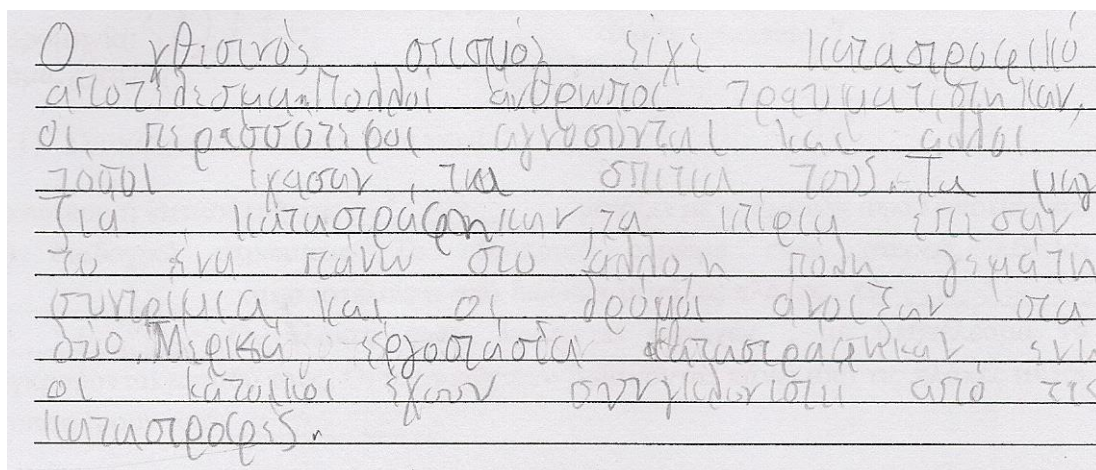 Ο χθισινός σισμός είχε καταστροφικό
αποτέλεσμα. Πολλοί άνθρωποι τραυματίστηκαν,
οι περασσότεροι αγνοούνται και άλλοι
τόσοι έχασαν τα σπίτια τους. Τα μαγ
ζιά καταστράφηκαν, τα κτίρια έπεσαν
το ένα πάνω στο άλλο, η πόλη γεμάτη
συντρίμια και οι δρόμοι άνοιξαν στα
δύο. Μερικά εργοστάσια καταστράφηκαν ενώ
οι κάτοικοι έχουν συγκλονιστεί από τις
καταστροφές.